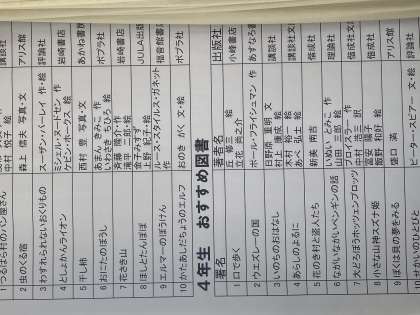 1 つるばら村のパン屋さん 講談社
中村 悦子 絵
2 虫のくる宿 森上 信夫 写真・文 アリス館
3 わすれられないおくりもの スーザン・バーレイ 作・絵 評論社
4 としょかんライオン ミシェル・ヌードセン 作 岩崎書店
ケビン・ホークス 絵
5 干し柿 西村 豊 写真・文 あかね書房
6 おにたのぼうし あまん きみこ 作 ポプラ社
いわさき ちひろ 絵
7 花さき山 斉藤 隆介・作 岩崎書店
滝平 二郎・絵
8 ほしとたんぽぽ 金子みすゞ JULA出版
上野 紀子・絵
9 エルマーのぼうけん ルース・スタイルス・ガネット 福音館書店
作
10 かたあしだちょうのエルフ おのき がく 文・絵 ポプラ社
4年生 おすすめ図書
書名 著者名 出版社
1 口で歩く 丘 修三 小峰書店
立花 尚之介 絵
2 ウエズレーの国 ポール・フライシュマン 作 あすなろ書
3 いのちのおはなし 日野原 重明 文 講談社
村上 康成 絵
4 あらしのよるに 木村 裕一 講談社文
あべ 弘士 絵
5 花のき村と盗人たち 新美 南吉 偕成社
6 ながいながいペンギンの話 いぬい とみこ 作 理論社
山田 三郎 絵
7 大どろぼうホッツェンプロッツ プロイスラー 作 偕成社文
中村 浩三 訳
8 小さな山神スズナ姫 富安 陽子 偕成社
飯野 和好 絵
9 ぼくは貝の夢をみる 盛口 満 アリス館
10 せかいのひとびと ピーター・スピアー 文・絵 評論社